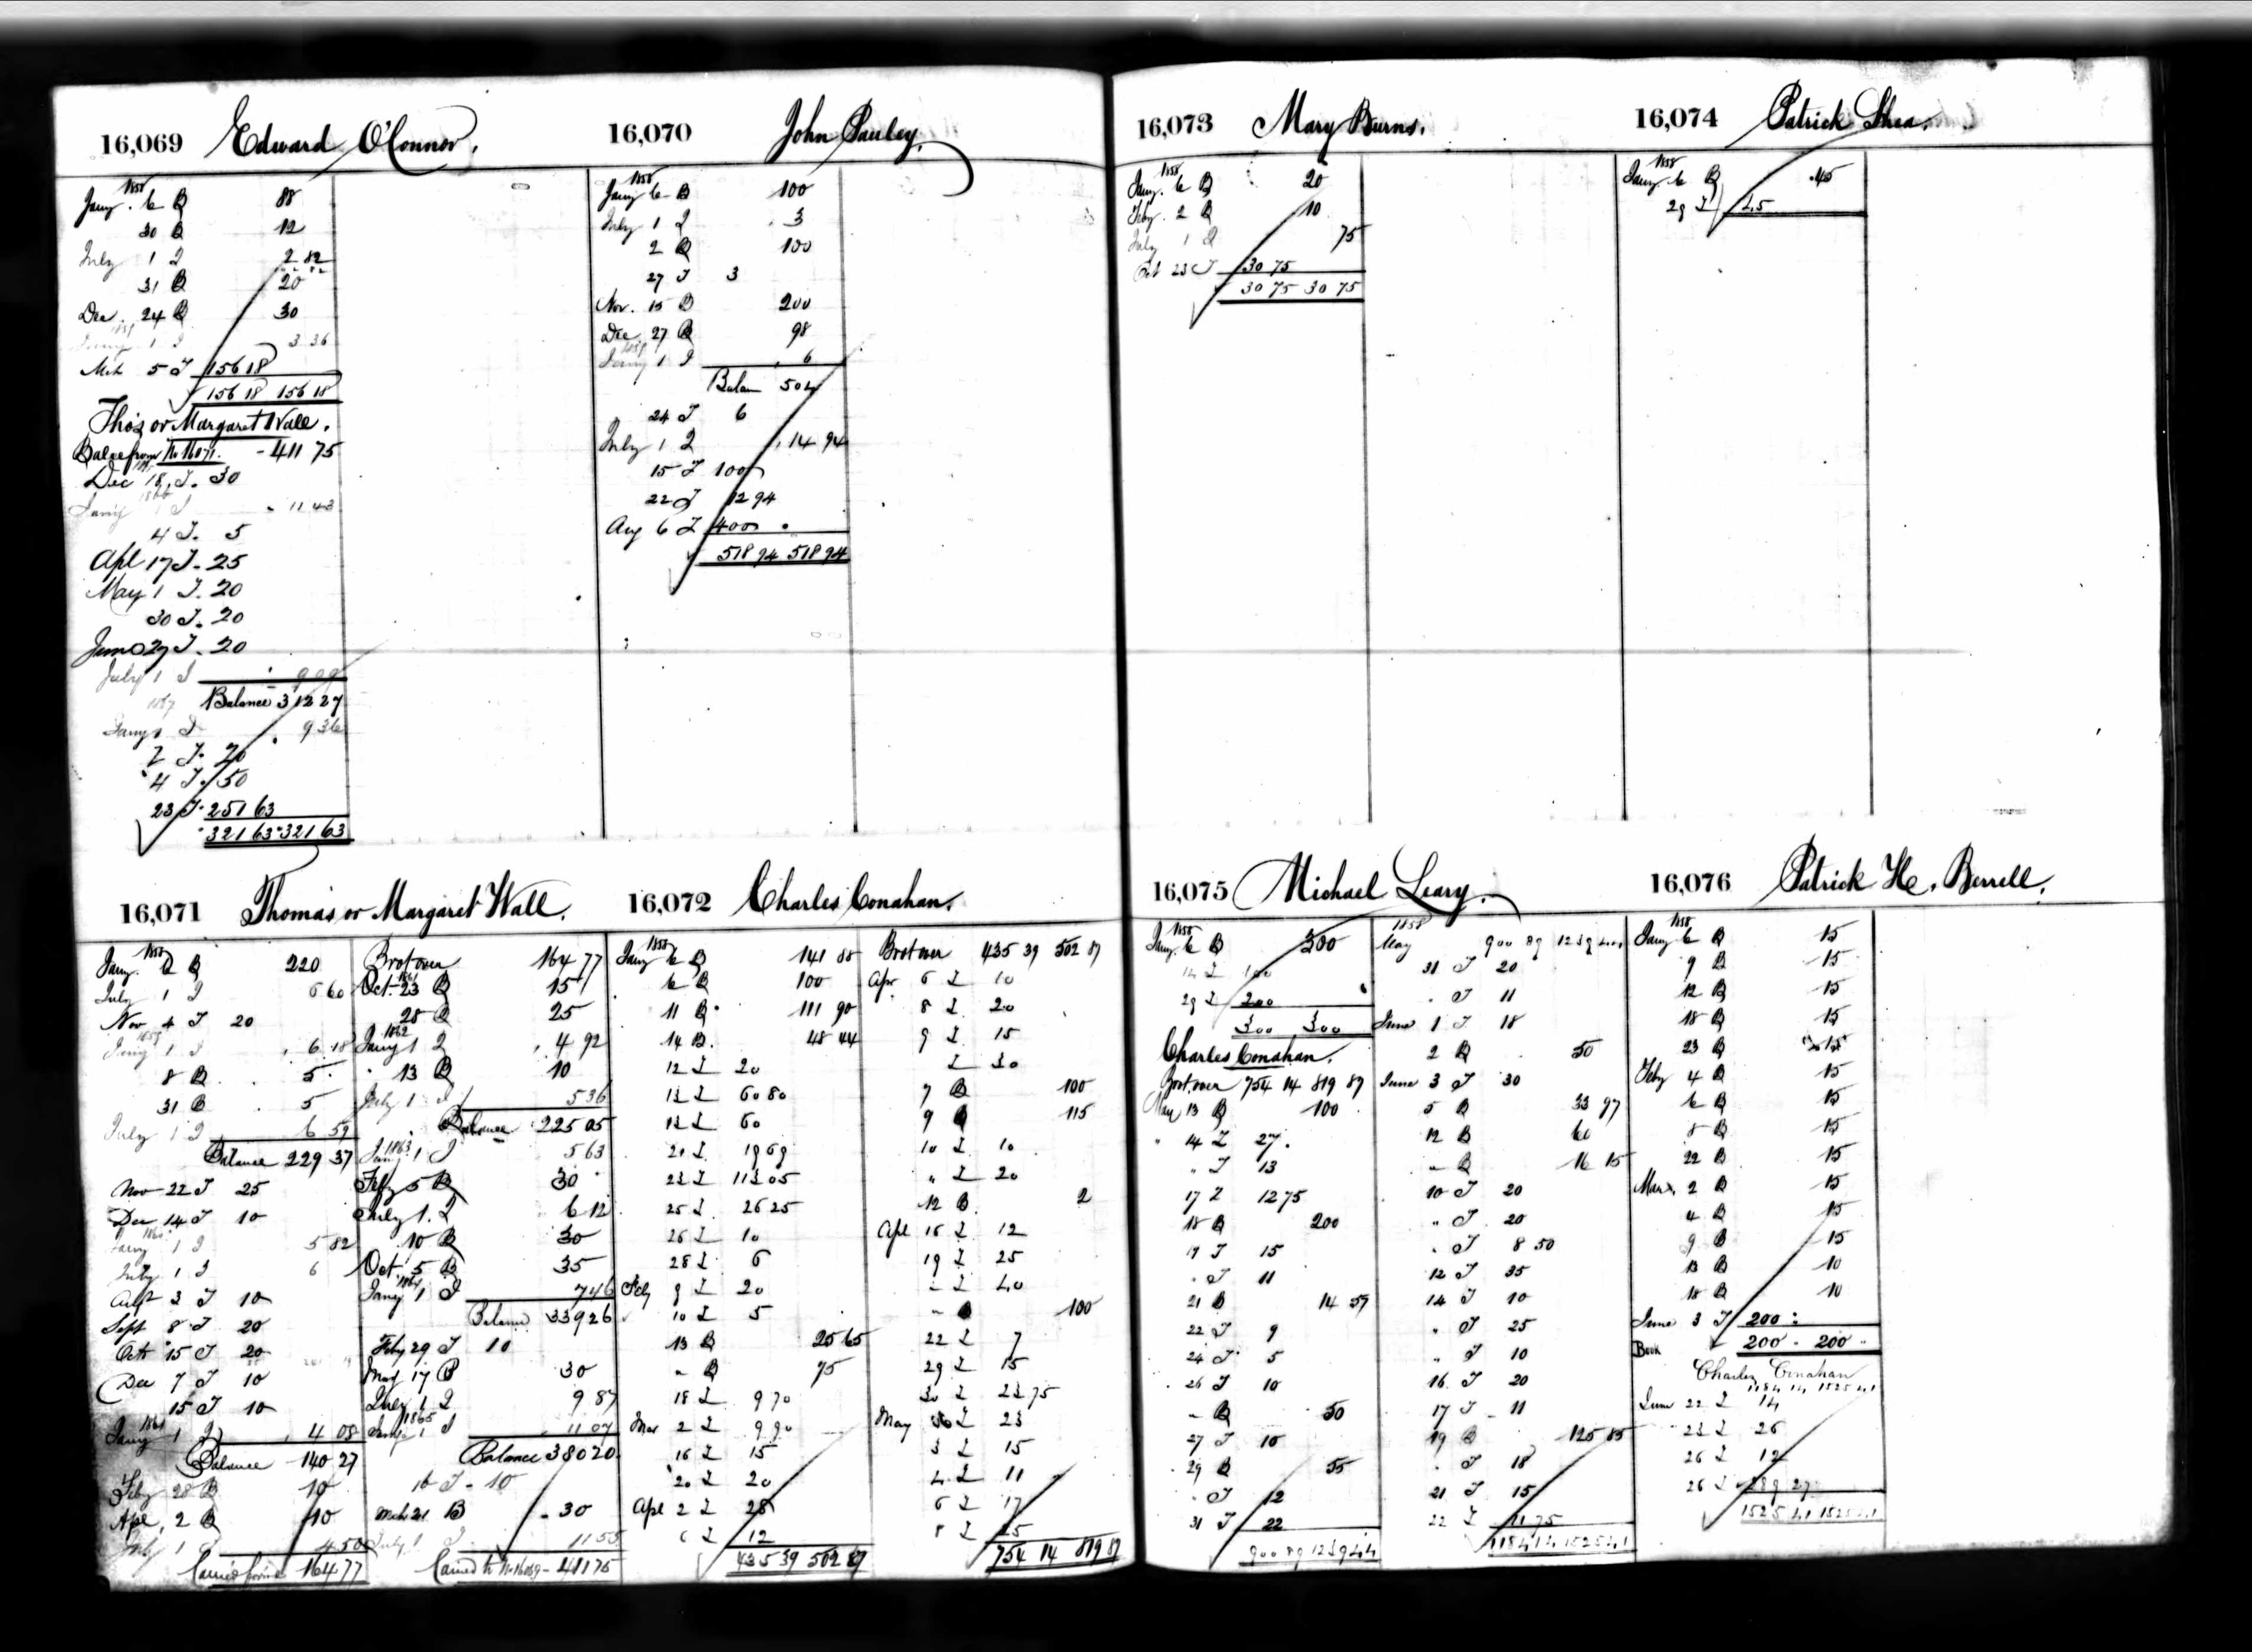 16,069 Edward O'Connor.
1858
Jany. 6 B 88
30 B 12
July 1 I 2 82
31 B 20
Dec. 24 B 30
1859
Jany 1 I 3 36
Mch 5 I 156 18
156 18 156 18
Thos or Margaret Wall.
Balce from No 16071. 411 75
Dec 18 I. 30
Jany 1 I 11 43
4 I. 5
Apl 17 I. 25
May 1 I. 20
30 I. 20
June 27 I. 20
July 1 I 9 09
Balance 312 27
1867
Jany 1 I 9 36
2 I. 20
4 I. 50
23 I. 251 63
321 63 321 63
16,070 John Pauley.
1858
Jany 6 B 100
July 1 I 3
2 B 100
27 I 3
Nov. 15 B 200
Dec 27 B 98
1859
Jany 1 I 6
Balan 504
24 I 6
July 1 I 14 94
15 I 100
22 I 12 94
Aug 6 I 400
518 94 518 94
16,071 Thomas or Margaret Wall.
1858
Jany. 6 B 220
July 1 I 6 60
Nov 4 I 20
1859
Jany 1 I 6 18
8 B 5
31 B 5
July 1 I 6 59
Balance 229 37
Nov 22 I 25
Dec 14 I 10
1860
Jany 1 I 5 82
July 1 I 6
Augt 3 I 10
Sept 8 I 20
Octr 15 I 20
Dec 7 I 10
15 I 10
1861
Jany 1 I 4 08
Balance 140 27
Feby 28 B 10
Apl. 2 B 10
July 1 I 4 50
Carried forward 164 77
Brot over 164 77
1861
Oct. 23 B 15
28 B 25
1862
Jany 1 I 4 92
13 B 10
July 1 I 5 36
Balance 225 05
1863
Jany 1 I 5 63
Feby 5 B 30
July 1. I 6 12
10 B 30
Oct 5 B 35
1864
Jany 1 I 7 46
Balance 339 26
Feby 29 I 10
May 17 B 30
July 1 I 9 87
1865
Jany 1 I 11 07
Balance 380 20
16 I. 10
Mch 21 B 30
July 1 I 11 55
Carried to No 16069 - 411 75
16,072 Charles Conahan.
1858
Jany 6 B 141 88
6 B 100
11 B 111 90
14 B. 48 44
12 I 20
13 I 60 80
13 I 60
21 I 19 69
23 I 113 05
25 I 26 25
26 I 10
28 I 6
Feby 9 I 20
10 I 5
13 B 25 65
" B 75
18 I 9 70
Mar 2 I 9 90
16 I 15
20 I 20
Apl 2 I 28
6 I 12
435 39 502 87
Brot over 435 39 502 87
Apr 6 I 10
8 I 20
9 I 15
I 30
7 B 100
9 B 115
10 I 10
" I 20
12 B 2
Apl 16 I 12
19 I 25
" I 40
" B 100
22 I 7
29 I 15
30 I 23 75
May I 23
3 I 15
4 I 11
6 I 17
8 I 25
754 14 819 87
16,073 Mary Burns.
1858
Jany. 6 B 20
Feby. 2 B 10
July 1 I 75
Oct 23 I 30 75
30 75 30 75
16,074 Patrick Shea.
1858
Jany. 6 B 45
29 I 45
16,075 Michael Leary.
1858
Jany. 6 B 300
14 I 100
29 I 200
300 300
Charles Conahan.
Brot over 754 14 819 87
May 13 B 100
" 14 I 27.
" I 13
17 I 12 75
18 B 200
19 I 15
" I 11
21 B 14 57
22 I 9
24 I 5
26 I 10
" B 50
27 I 10
29 B 55
" I 12
31 I 22
900 89 1239 44
1858
May 900 89 1239 44
31 I 20
" I 11
June 1 I 18
2 B 50
June 3 I 30
5 B 33 97
12 B 60
" B 16 15
10 I 20
" I 20
" I 8 50
12 I 35
14 I 10
" I 25
" I 10
16 I 20
17 I 11
19 B 125 85
" I 18
21 I 15
22 I 11 75
1184 14 1525 41
16,076 Patrick H. Berrell.
1858
Jany 6 B 15
9 B 15
12 B 15
18 B 15
23 B 15
Feby 4 B 15
6 B 15
8 B 15
22 B 15
Mar. 2 B 15
4 B 15
9 B 15
13 B 10
18 B 10
June 3 I 200
Book 200 - 200
Charles Conahan
1184 14 1525 41
June 22 I 14
23 I 26
26 I 12
26 I 289 27
1525 41 1525 41